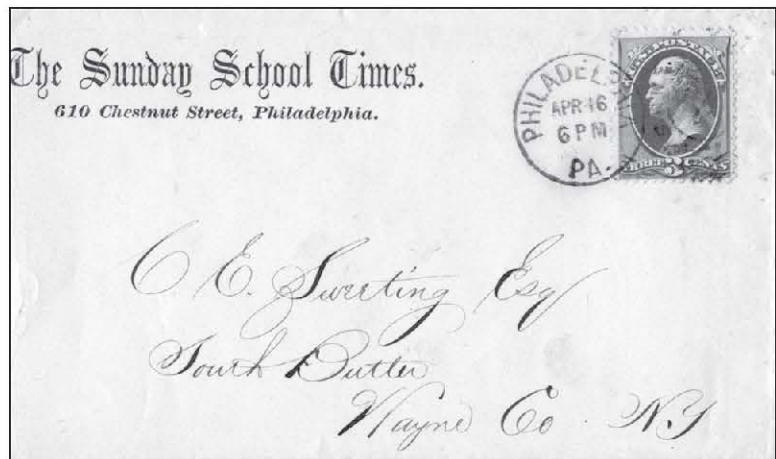 The Sunday School Times.
610 Chestnut Street, Philadelphia.
PHILADEL
APR 16
6 PM
PA.
U.S. POSTAGE
THREE 3 CENTS
C. E. Sweeting Esq
South Butler
Wayne Co. N.Y